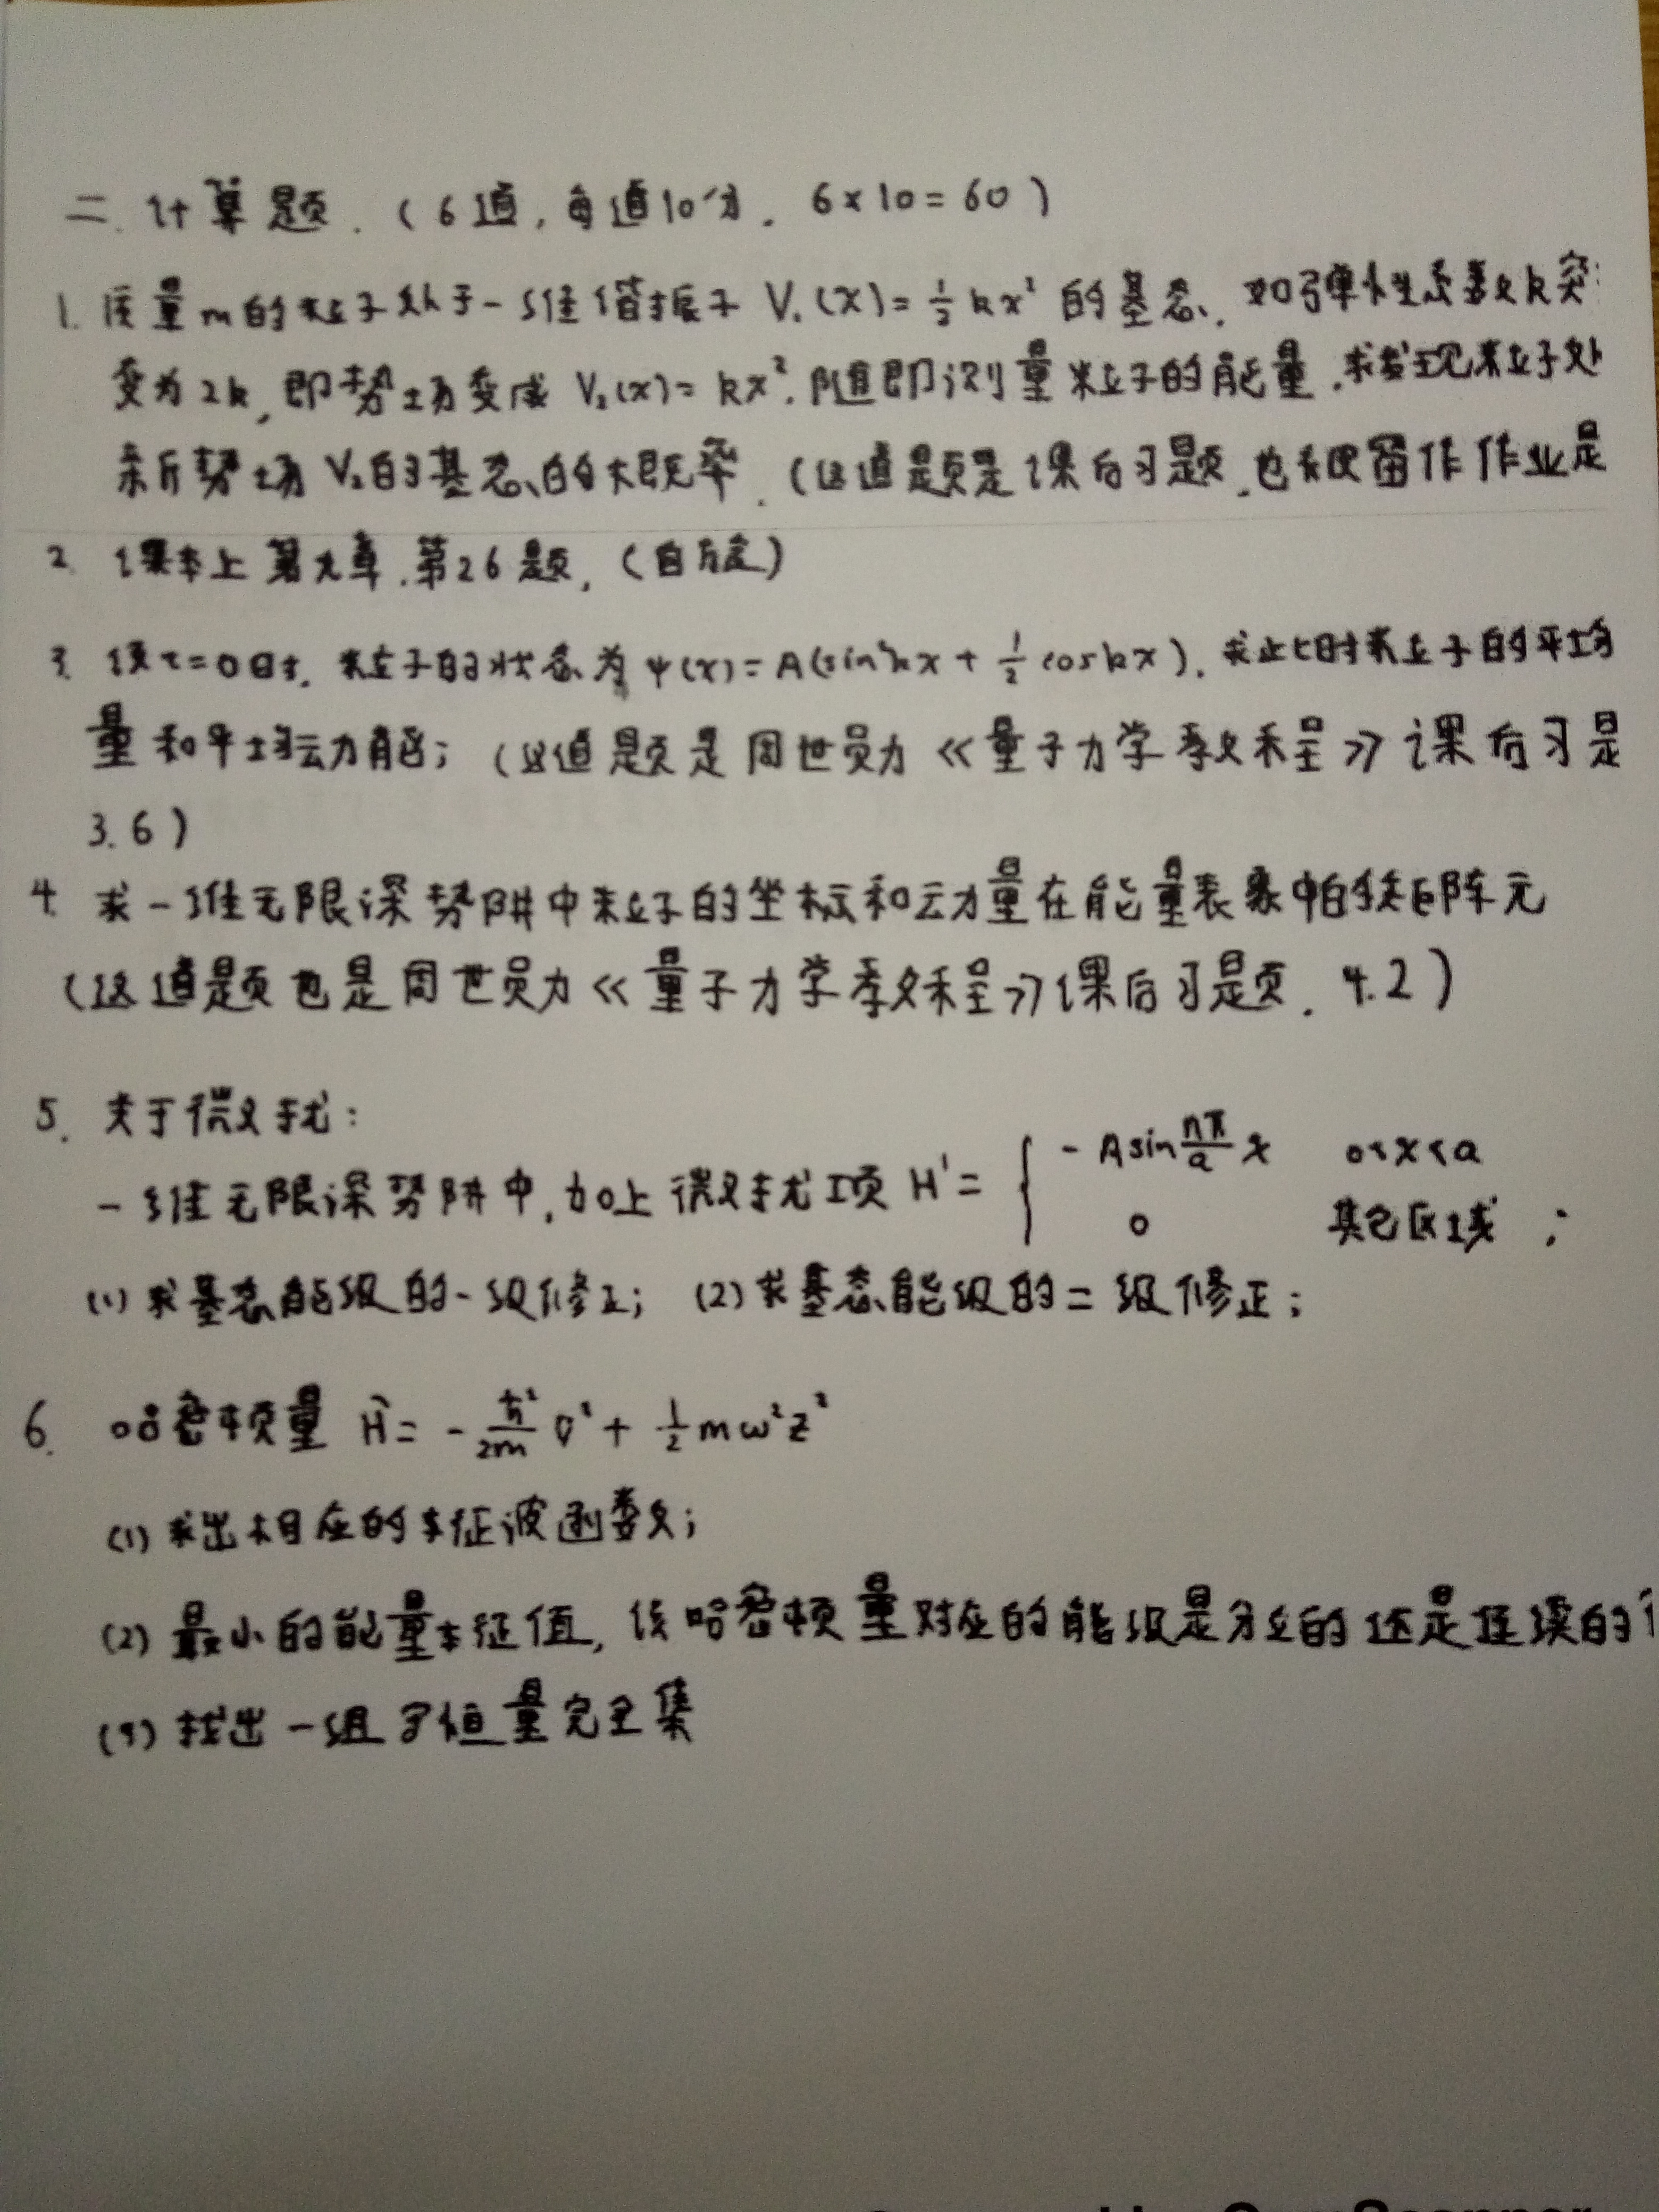 二. 计算题. (6道, 每道10分. 6×10=60)
1. 质量m的粒子处于一维谐振子 V₁(x)=½kx² 的基态. 如弹性系数k突
变为2k, 即势场变成 V₂(x)=kx². 随即测量粒子的能量. 求发现粒子处
新势场 V₂的基态的概率. (这道题是课后习题, 也 留作作业是
2. 课本上第九章. 第26题, (自旋)
3. 设t=0时. 粒子的状态为 ψ(x)=A(sin²kx+½coskx). 求此时粒子的平均
量和平均动能; (这道题是周世勋《量子力学教程》课后习是
3.6)
4. 求一维无限深势阱中粒子的坐标和动量在能量表象中的矩阵元
(这道题也是周世勋《量子力学教程》课后习题. 4.2)
5. 关于微扰:
一维无限深势阱中, 加上微扰项 H'={ -Asin(nπ/a)x 0<x<a
0 其它区域 ;
(1) 求基态能级的一级修正; (2) 求基态能级的二级修正;
6. 哈密顿量 Ĥ=-ħ²/2m ∇²+½mω²z²
(1) 求出相应的本征波函数;
(2) 最小的能量本征值, 该哈密顿量对应的能级是分立的还是连续的
(3) 找出一组守恒量完全集